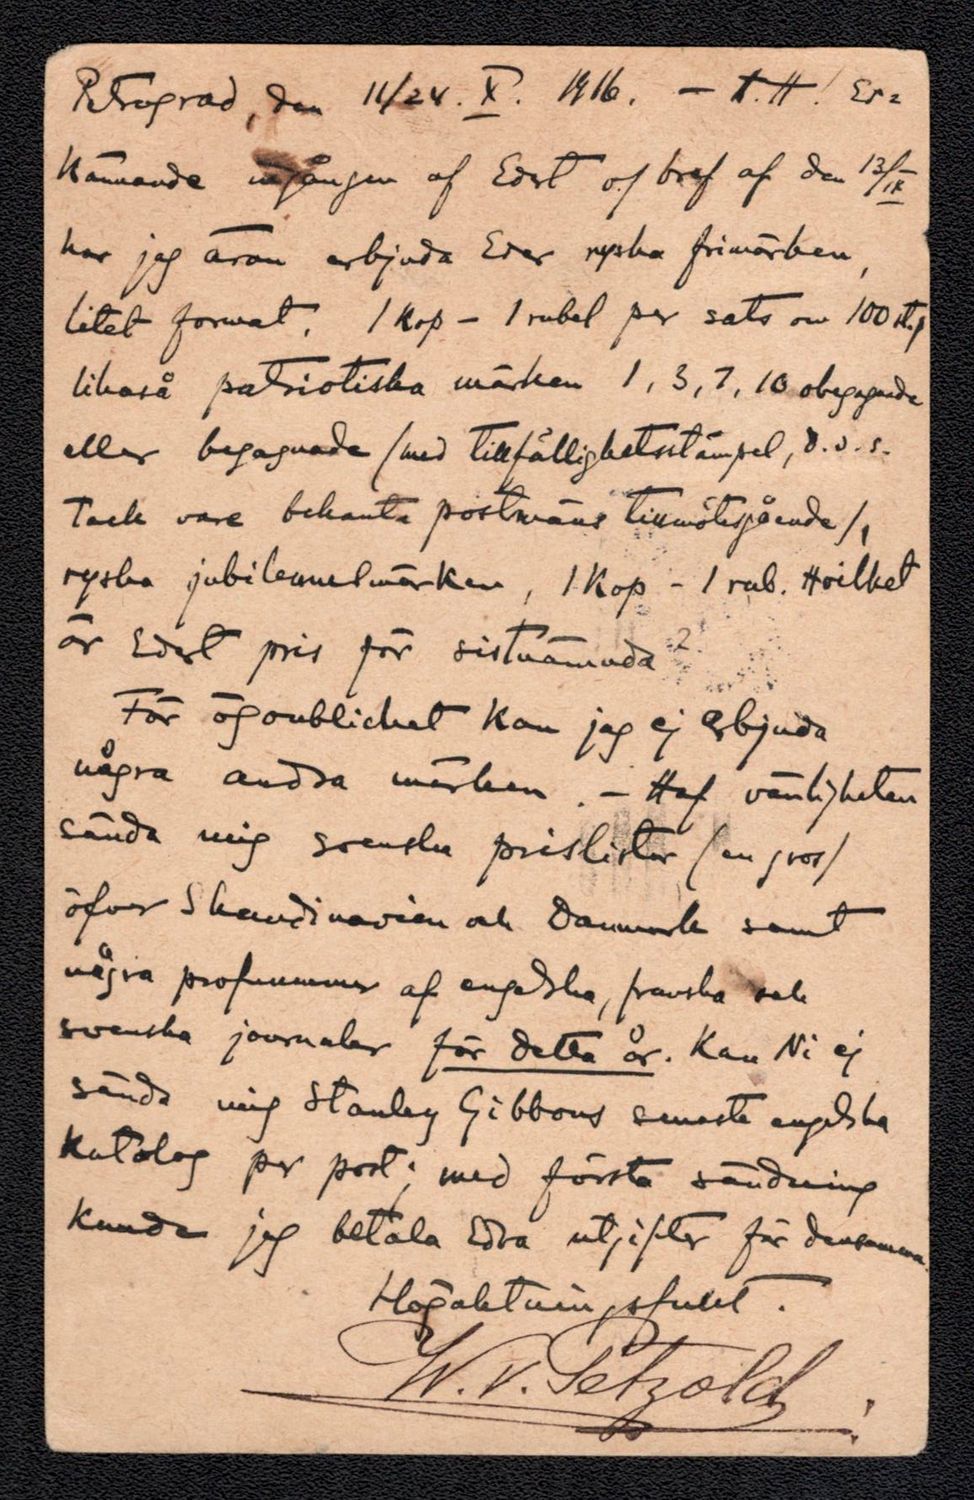 Petrograd, den 11/24. X. 1916. – T.H! Er=
kännande ingången af Edert o/ bref af den 13/IX
har jag äran erbjuda Eder ryska frimärken,
litet format, 1 Kop – 1 rubel per sats om 100 st,
likaså patriotiska märken 1, 3, 7, 10 obegagnade
eller begagnade /med tillfällighetsstämpel, d.v.s.
tack vare bekanta postmäns tillmötesgående/,
ryska jubileumsmärken, 1 Kop – 1 rub. Hvilket
är Edert pris för sistnämnda?
För ögonblicket kan jag ej erbjuda
några andra märken. – Haf vänligheten
sända mig svenska prislister /en gros/
öfver Skandinavien och Danmark samt
några profnummer af engelska, franska och
svenska journaler för detta år. Kan Ni ej
sända mig Stanley Gibbons senaste engelska
katalog per post; med första sändning
kunde jag betala Edra utgifter för densamma.
Högaktningsfullt.
W. v. Petzold